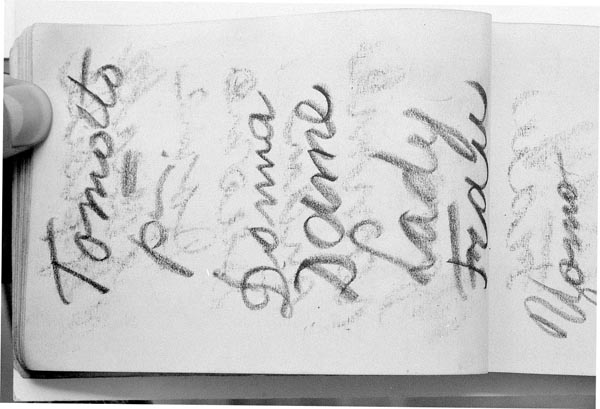 Tomotto
Donna
Dame
Lady
Frau
Uomo